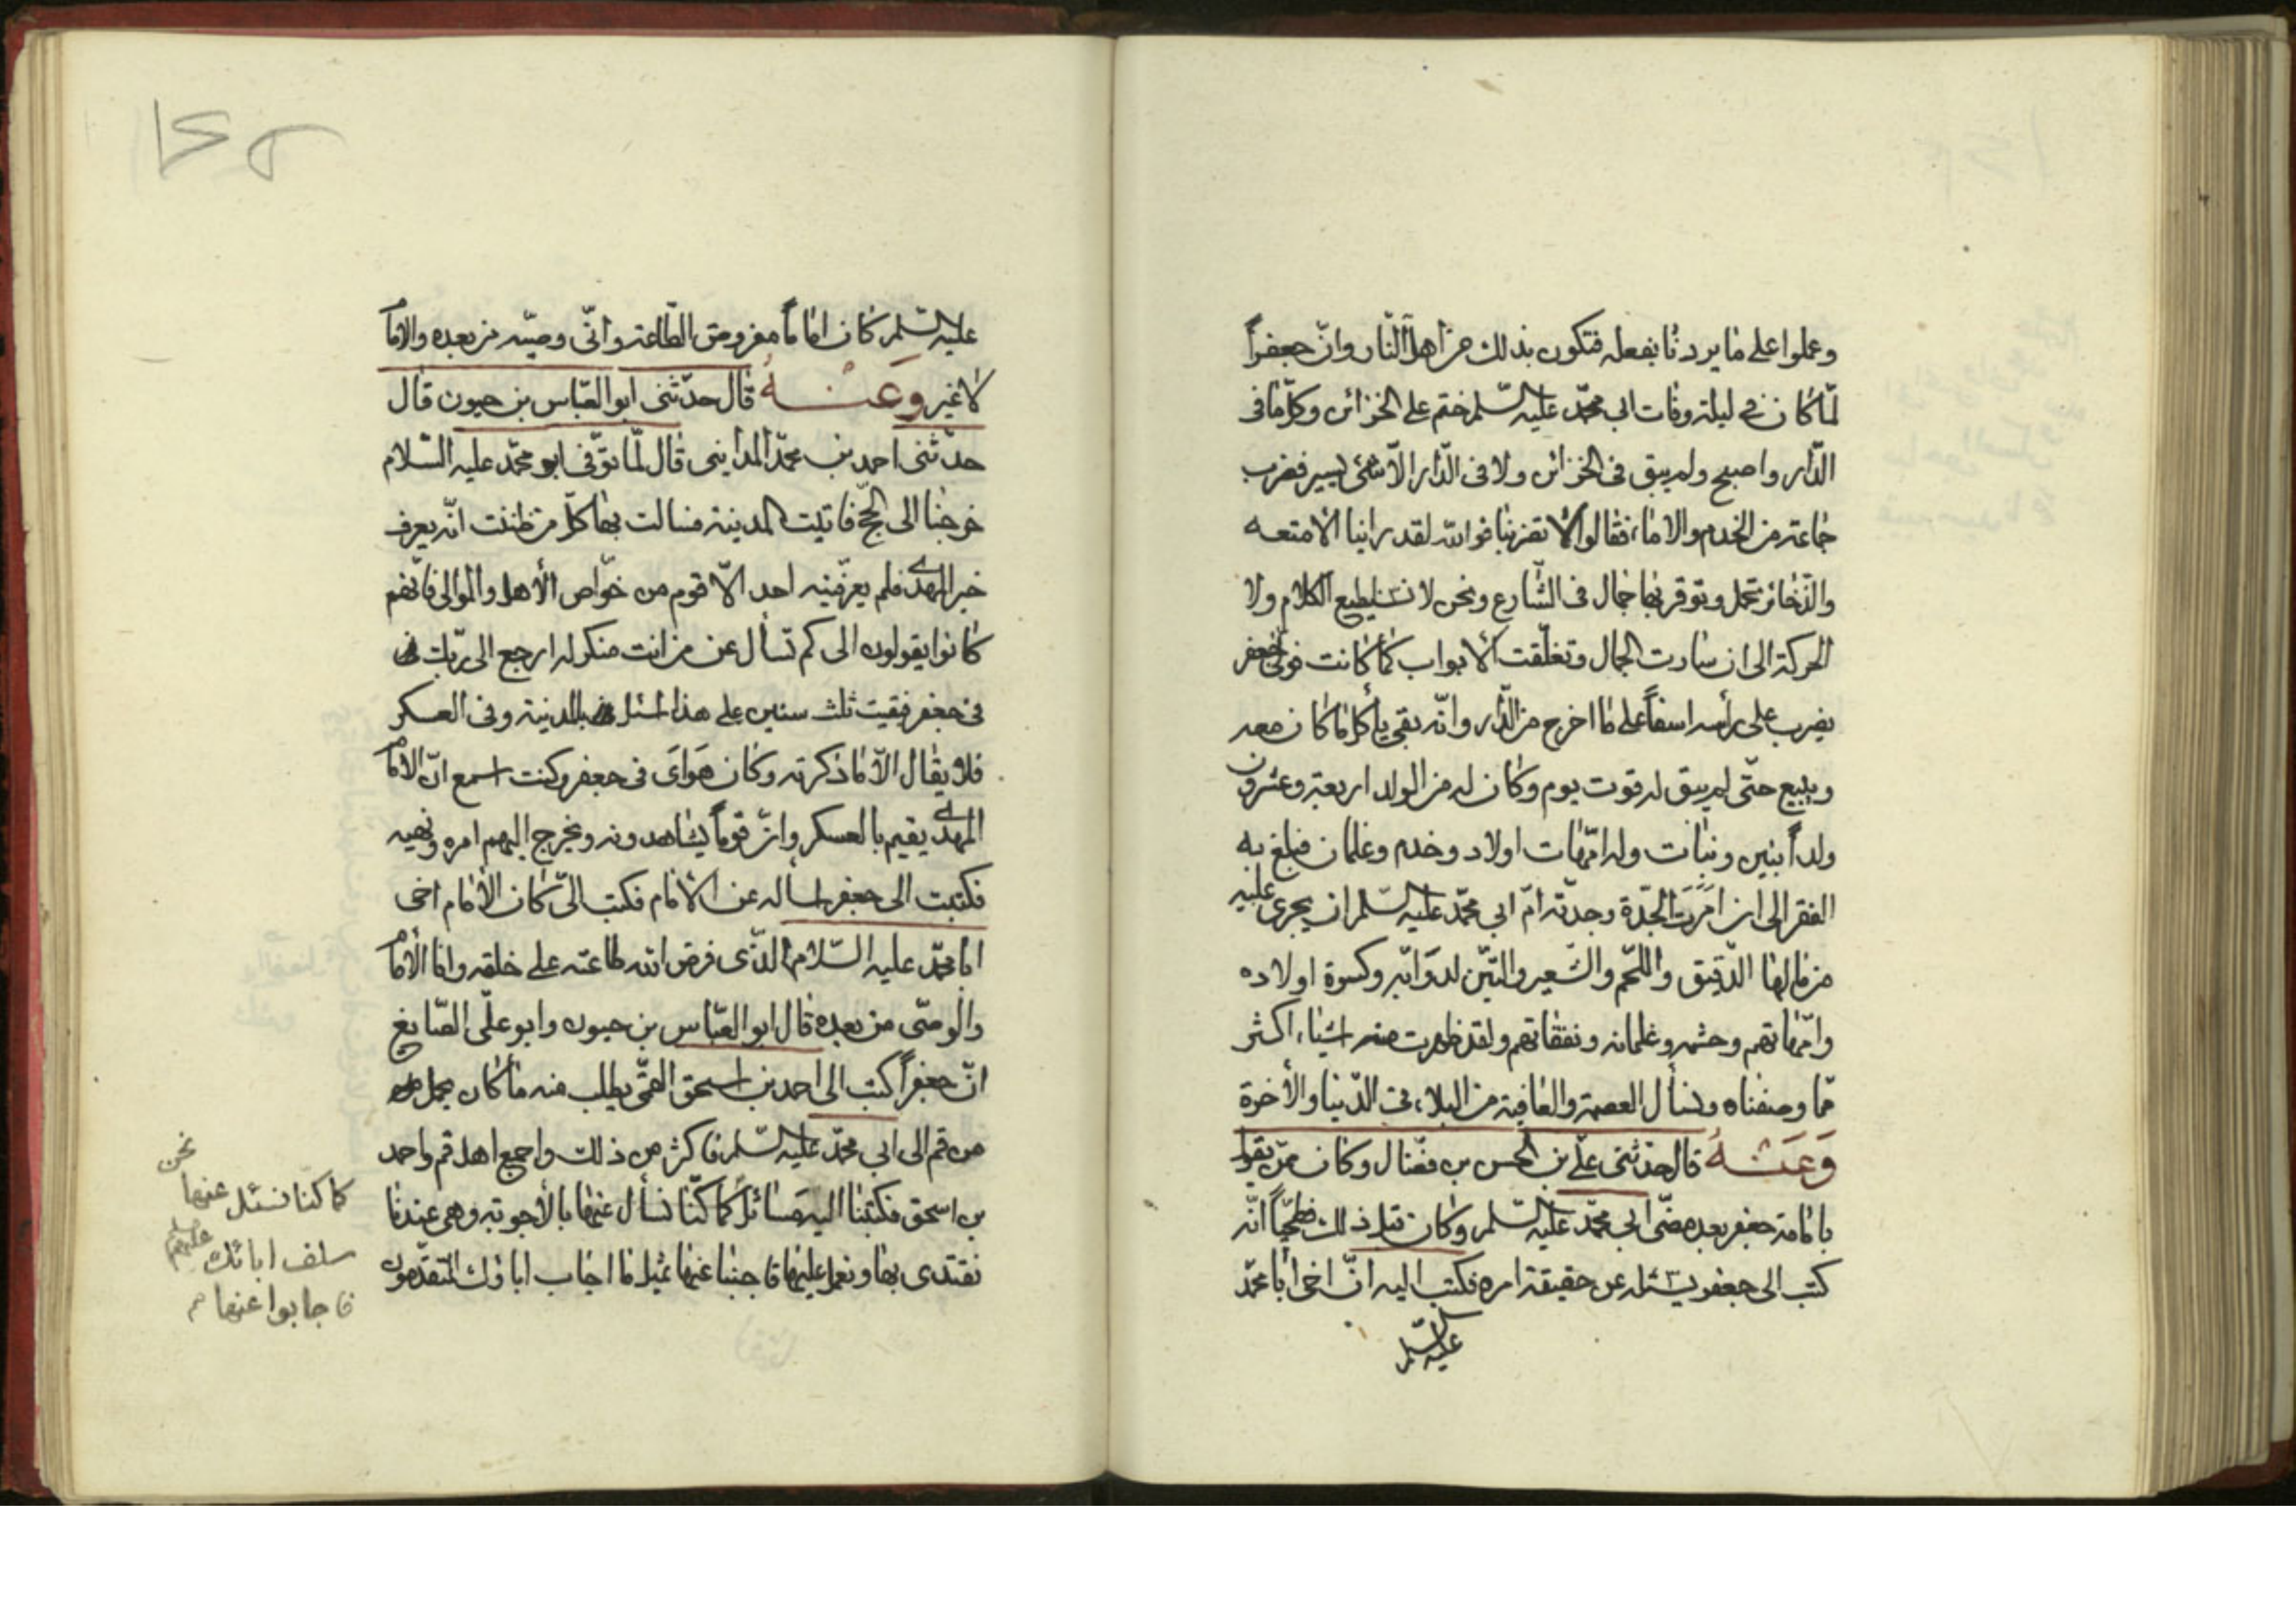 وعملوا على ما يردنا بفعله فتكون بذلك من أهل النار وانّ جعفراً
لمّا كان في ليلة وفات ابي محمّد عليه السّلم ختم على الخزائن وكلّما في
الدّار واصبح ولم يبق في الخزائن ولا في الدّار الّا شئ يسير فضرب
جماعة من الخدم والاماء فقالوا لا تضربنا فوالله لقد راينا الامتعه
والذّخائر تحمل وتوقر بها جمال في الشّارع ونحن لا نستطيع الكلام ولا
الحركة الى ان سارت الجمال وتغلّقت الابواب كما كانت فولّى جعفر
يضرب على رأسه اسفاً على ما اخرج من الدّار وانّه بقى يأكل ما كان معه
ويبيع حتّى لم يبق له قوت يوم وكان له من الولد اربعة وعشرون
ولداً بنين وبنات وله امّهات اولاد وخدم وغلمان فبلغ به
الفقر الى ان امَرَت الجدّة وجدّته امّ ابي محمّد عليه السّلم ان يجرى عليه
من مالها الدّقيق واللّحم والشّعير والتّبن لدوَابّه وكسوة اولاده
وامّهاتهم وحشمه وغلمانه ونفقاتهم ولقد ظهرت منه اشياء اكثر
ممّا وصفناه ونسأل العصمة والعافية من البلاء في الدّنيا والأخرة
وَعَنْهُ قال حدّثنى علىّ بن الحسن بن فضّال وكان ممّن يقول
بامامة جعفر بعد مضّى ابي محمّد عليه السّلم وكان قبل ذلك فطحيّاً انّه
كتب الى جعفر يسئله عن حقيقة امره فكتب اليه انّ اخى ابا محمّد
عليه السّلم
١٤٥
عليه السّلم كان اماماً مفروض الطّاعة وانّى وصيّه من بعده والامام
لا غير وَعَنْهُ قال حدّثنى ابو العبّاس بن حيون قال
حدّثنى احمد بن محمّد المدائنى قال لمّا توّفى ابو محمّد عليه السّلام
خرجنا الى الحجّ فاتيت المدينة فسالت بها كلّ من ظننت انّه يعرف
خبر المهدى فلم يعرّفنيه احد الّا قوم من خوّاص الأهل والموالى فانّهم
كانوا يقولون الى كم تسأل عن من انت منكر له ارجع الى ربّك
فى جعفر فبقيت ثلث سنين على هذا اسئل بالمدينة وفى العسكر
فلا يقال الّا ما ذكرته وكان هَوَاىَ فى جعفر وكنت اسمع انّ الامام
المهدى يقيم بالعسكر وانّ قوماً يشاهدونه ويخرج اليهم امره ونهيه
فكتبت الى جعفر اسأله عن الامام فكتب الىّ كان الأمام اخى
ابا محمّد عليه السّلام الّذى فرض الله طاعته على خلقه وانا الأمام
والوصّى من بعده قال ابو العبّاس بن حيون وابو علّى الصّايغ
انّ جعفراً كتب الى احمد بن اسحق القمّى يطلب منه ما كان يحمل
من قم الى ابي محمّد عليه السّلم فاكثر من ذلك واجمع اهل قم واحمد
بن اسحق فكتبنا اليه مَسَائل كما كنّا نسأل عنها بالأجوبة وهى عندنا
نقتدى بها ونعمل عليها فاجبنا عنها مثل ما اجاب اباؤك المتقدّمون
نحن
كما كنّا نسئل عنها
سلف ابائك عليهم السلم
فاجابوا عنها